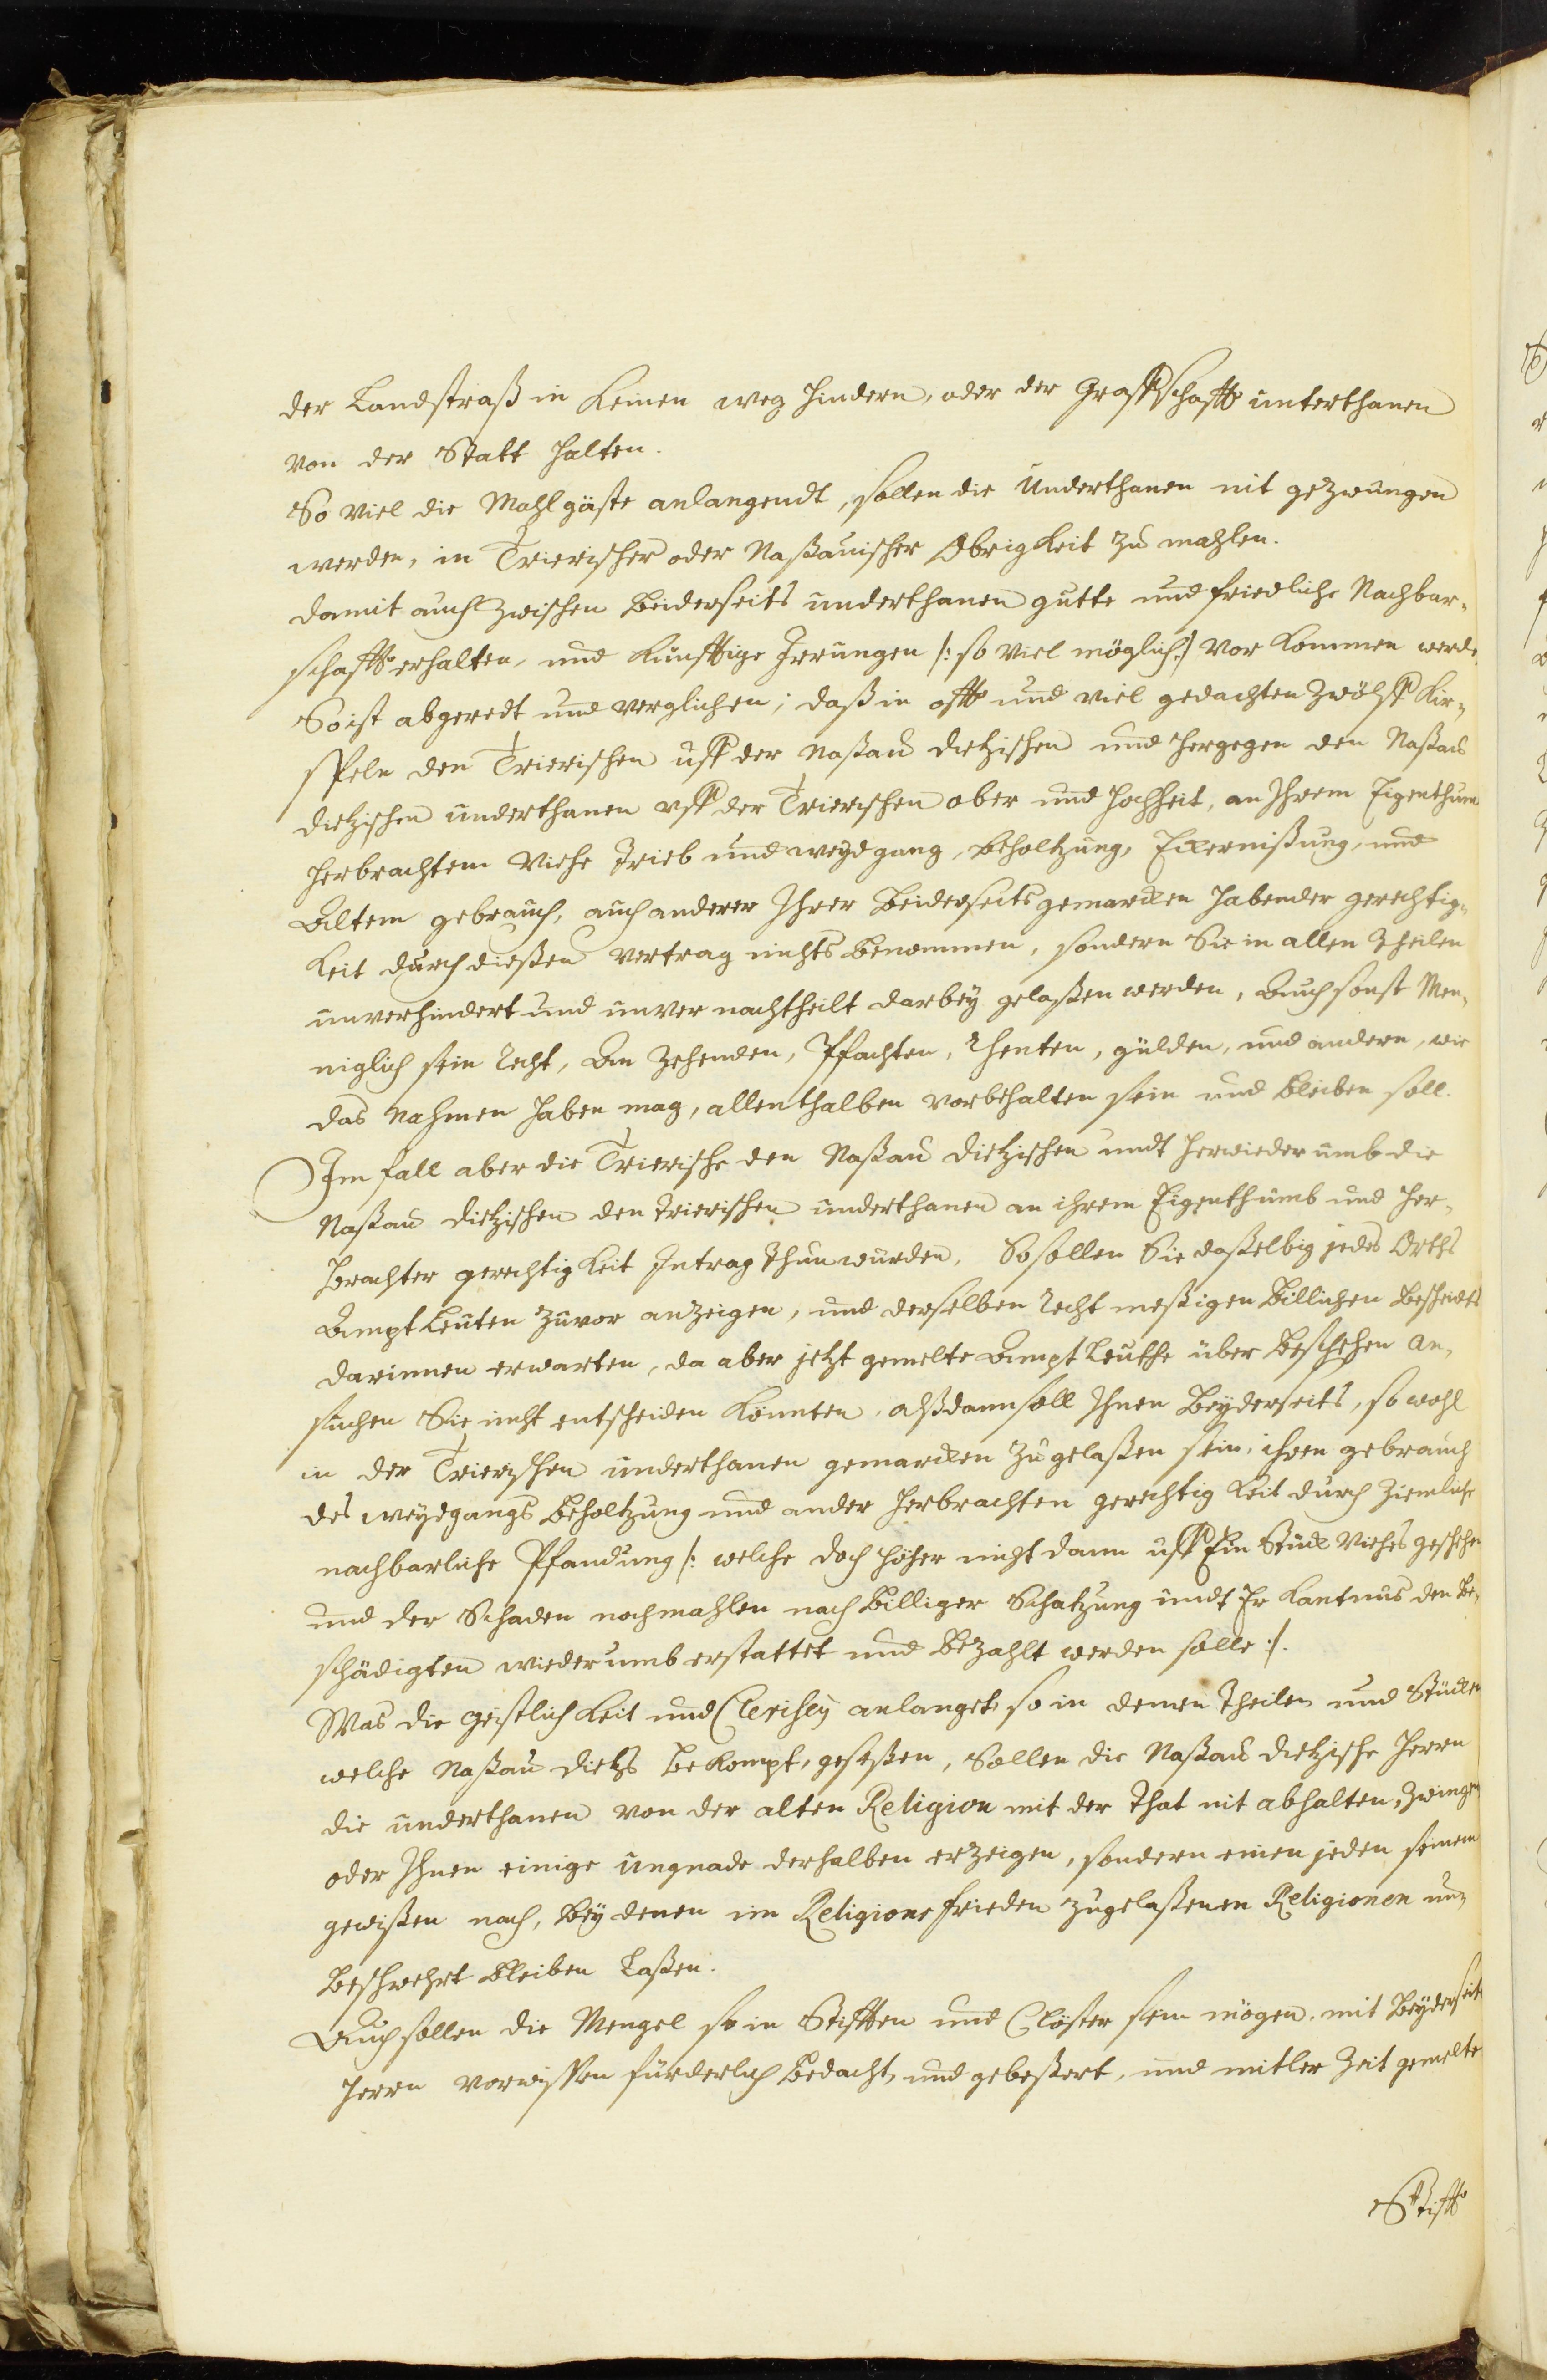 der Landstraß in Keinen weg hindern, oder der Graffschafft unterthanen
von der Statt halten.
So viel die Mahlgäste anlangendt, sollen die Underthanen nit gezwungen
werden, in Trierischer oder Naßauischer Obrigkeit zu mahlen.
damit auch zwischen Beiderseits underthanen gutte und friedliche Nachbar-
schafft erhalten, und künfftige Irrungen /: so viel möglich :/ vor kommen werde,
So ist abgeredt und verglichen; daß in offt und viel gedachten Zwölff Kir-
speln den Trierischen uff der Naßau dietzischen und hergegen den Naßau
dietzischen underthanen uff der Trierischen ober und hochheit, an Ihrem Eigenthum
herbrachtem Viehe Trieb und weydgang, beholtzung, Eckernißung, und
Altem gebrauch, auch anderer Ihrer Beiderseits gemarcken habender gerechtig-
keit durch dießen vertrag nichts benommen, sondern Sie in allen Theilen
unverhindert und unver nachtheilt darbey gelaßen werden, Auch sonst Men-
niglich sein recht, An Zehenden, Pfachten, Rhenten, gülden, und andern, wie
das nahmen haben mag, allenthalben vorbehalten sein und bleiben soll.
Im fall aber die Trierische den Naßau dietzischen undt herwieder umb die
Naßau dietzischen den Trierischen underthanen an ihrem Eigenthumb und her-
brachter gerechtigkeit Intrag thun würden, So sollen Sie daßelbig jedes Orths
Ampt Leuten zuvor anzeigen, und derselben recht meßigen billichen bescheidts
darinnen erwarten, da aber jetzt gemelte Ampt Leuthe über beschehen an-
suchen Sie nicht entscheiden könnten, alßdann soll Ihnen Beyderseits, so wohl
in der Trierischen underthanen gemarcken zu gelaßen sein, ihren gebrauch
des weydgangs beholtzung und ander herbrachten gerechtigkeit durch ziemliche
nachbarliche Pfandung /: welche doch höher nicht dann uff Ein Stück Viehes geschehen
und der Schaden nochmahlen nach billiger Schatzung undt Erkantnus den be-
schädigten wiederumb erstattet und bezahlt werden solle :/.
Was die geistlichkeit und Clerisey anlanget so in denen Theilen und Stücken
welche Naßau dietz bekompt, geseßen, Sollen die Naßau dietzische Herrn
die underthanen von der alten Religion mit der That nit abhalten, zwingen
oder Ihnen einige ungnade derhalben erzeigen, sondern einen jeden seinem
gewißen nach, bey denen im Religions frieden zugelaßenen Religionen un-
beschwehrt bleiben laßen.
Auch sollen die Mengel so in Stifften und Clöster sein mögen, mit Beyderseits
Herrn vorwißen fürderlich bedacht, und gebeßert, und mitler Zeit gemelte
Stifft